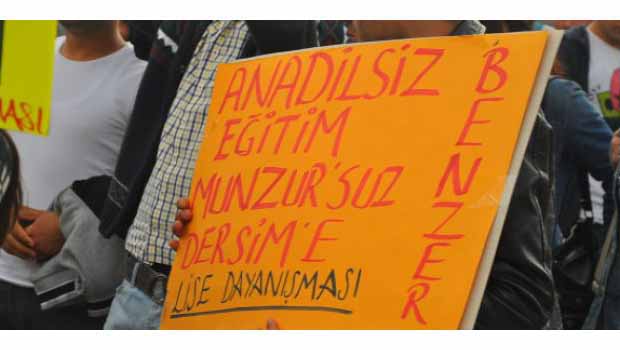 ANADİLSİZ
EĞİTİM
MUNZUR'SUZ
DERSİM'E
BENZER
LİSE DAYANIŞMASI